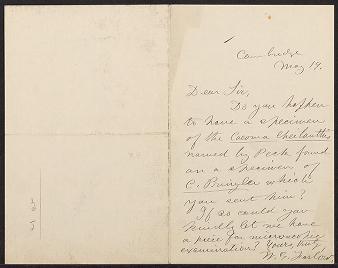 Cambridge
May 19.
Dear Sir,
Do you happen
to have a specimen
of the Caeoma Cheilanthis
named by Peck found
on a specimen of
C. which
you sent him?
If so could you
kindly let me have
a piece for microscopic
examination? Yours truly
W. G. Farlow.